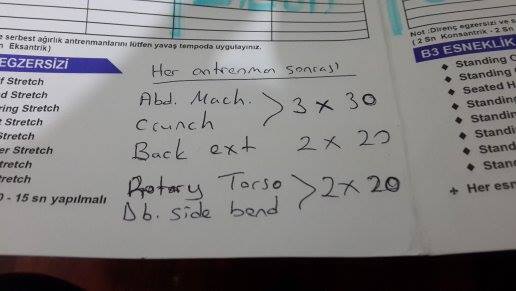 e serbest ağırlık antrenmanlarını lütfen yavaş tempoda uygulayınız.
n Eksantrik)
EGZERSİZİ
f Stretch
d Stretch
ring Stretch
t Stretch
Stretch
er Stretch
tretch
tretch
0 - 15 sn yapılmalı
Her antrenman sonrası
Abd. Mach.
Crunch
> 3 x 30
Back ext 2 x 20
Rotary Torso
Db. side bend
> 2 x 20
Not :Direnç egzersizi ve s
( 2 Sn Konsantrik - 2 Sn
B3 ESNEKLİK
Standing
Standing
Seated H
Standing
Standin
Standi
Stand
Stan
+ Her esn